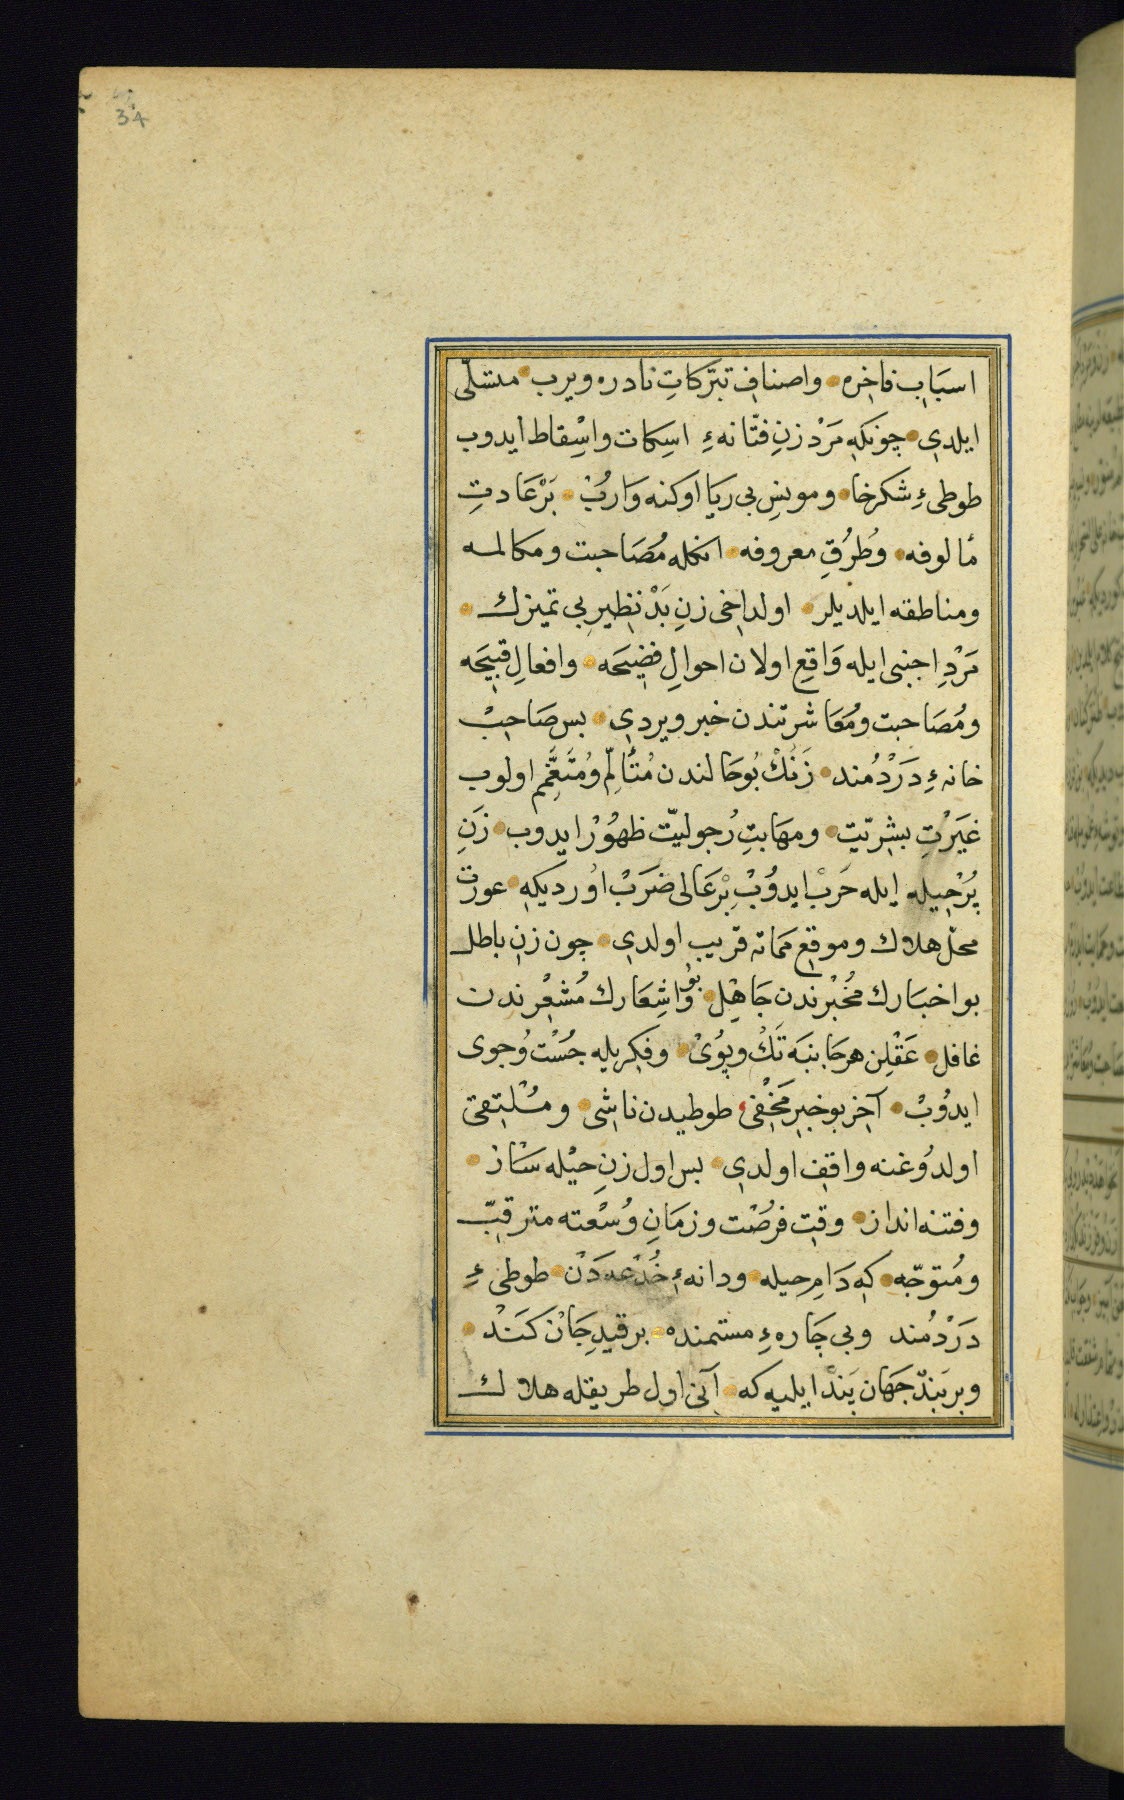 34
اسبَابِ فاخِره واصنافِ تبرّكاتِ نادره ويرب متسلّى
ايلدى چونكه مَرْد زنِ فتّانهءِ اسِكات واسِْقاط ايدوب
طوطىءِ شكرخا ومونسِ بى ريَا اوكنه وَاروُبْ بَرْعَادتِ
مألوفه وطُرُقِ معروفه انكله مُصَاحبت ومكالمه
ومناطقه ايلديلر اولداخى زنِ بَدْ نظيرِ بى تميزك
مَرْدِ اجنبى ايله وَاقع اولان احوالِ فضيَحه وافعالِ قبيحَه
ومُصَاحبت ومُعَاشرتندن خبر ويردى بس صَاحِبْ
خانهءِ دَرْدمُند زَنُكْ بُو حَالندن مُتألِّم ومُتَغَّمِم اولوب
غيَرْتِ بشرّيتِ ومهَابتِ رُجوليّت ظهُوُرْ ايدوب زَنِ
پُرْحِيله ايله حَرْبْ ايدوُبْ بْرعَالى ضرَبْ اوُرديكه عورت
محلّ هلاك وموقعِ ممَاته قريب اولدى چون زنِ باطل
بو اخبارك مُخْبْرندن جَاهِْل بو وَاشِعَارك مُشعْرندن
غافل عَقْلِن هرجَانبَه تَكْ وپوُىْ وفكريله جُسْت وُجوى
ايدوُبْ آخِر بو خبرِ مَخْفى طوطيدن ناشى ومُلْتِقى
اولدوُغنه واقِف اولدى بس اول زنِ حيْله سَاز
وفتنه انداز وقتِ فرصُت وزمَانِ وُسْعته مترقّب
ومُتوجّه كه دَامِ حيله ودانهءِ خُدْعه دَنْ طوطىءِ
دَرْدمُند وبى چَارهءِ مستمنده برقيدِ جَانْ كَنْد
وبر بَندْ جهَان بَندْ ايليه كه آنى اول طريقله هلاك